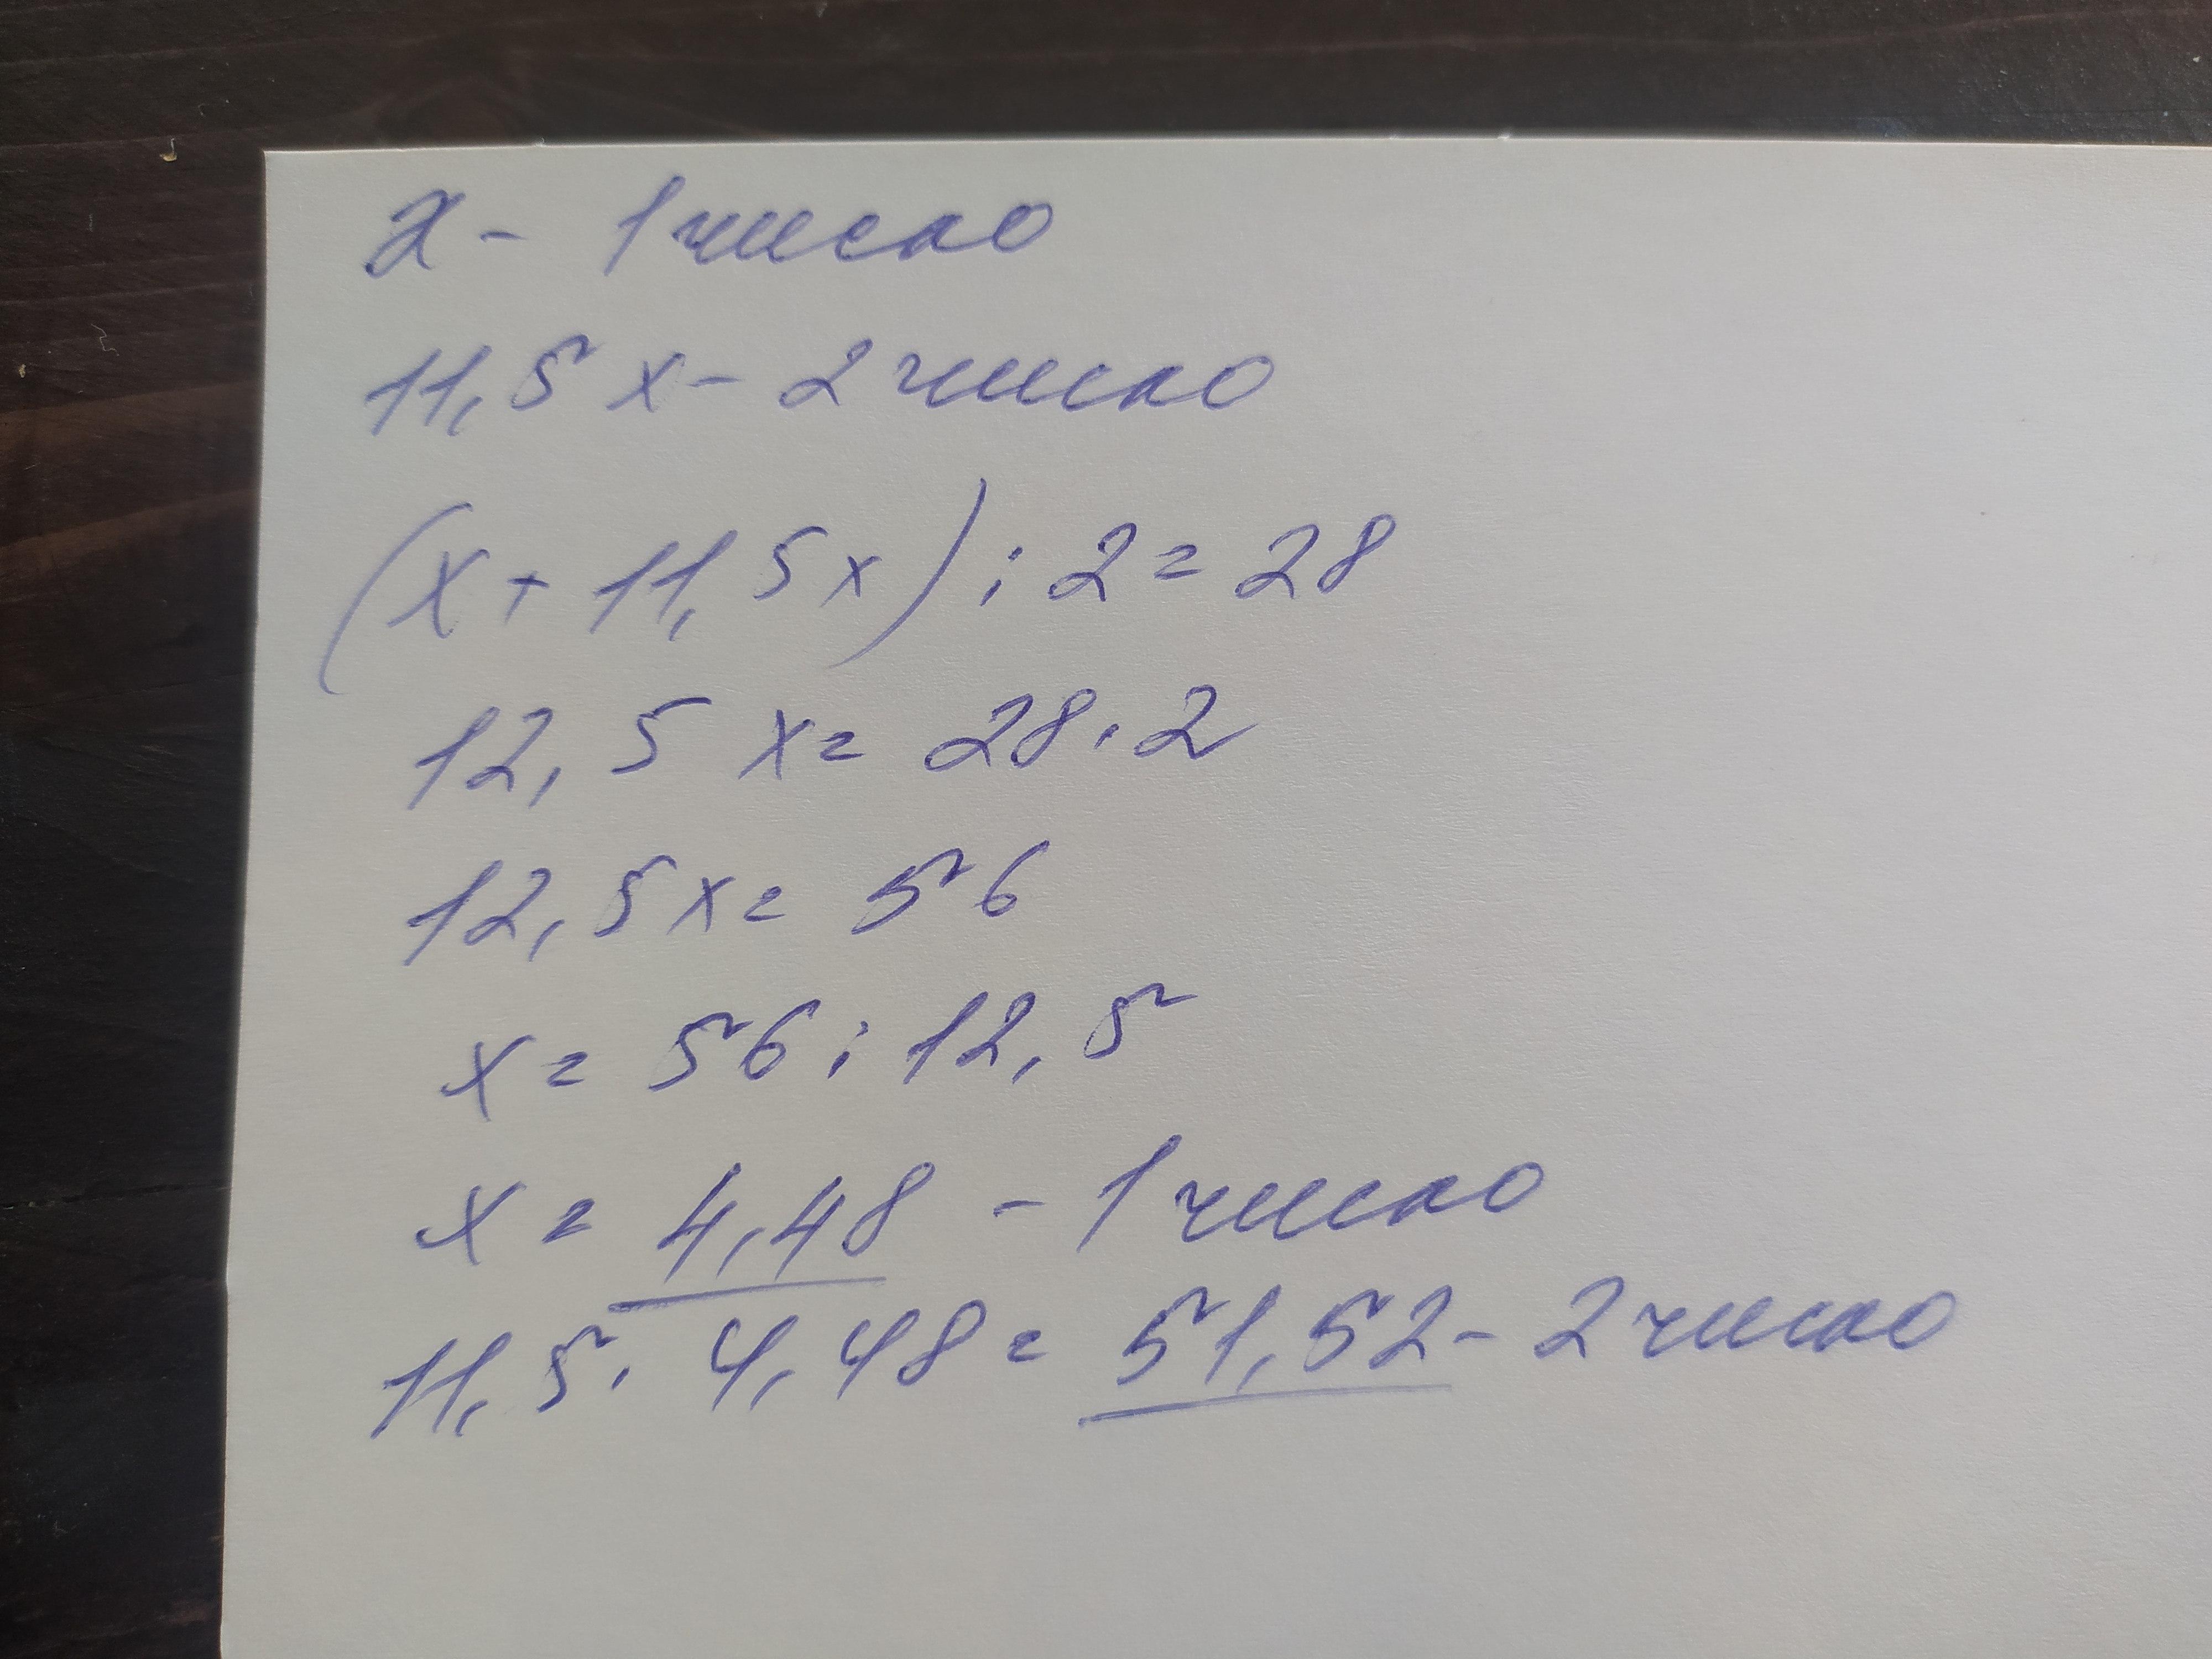 x - 1 число
11,5 x - 2 число
(x + 11,5x) : 2 = 28
12,5 x = 28 · 2
12,5x = 56
x = 56 : 12,5
x = 4,48 - 1 число
11,5 · 4,48 = 51,52 - 2 число